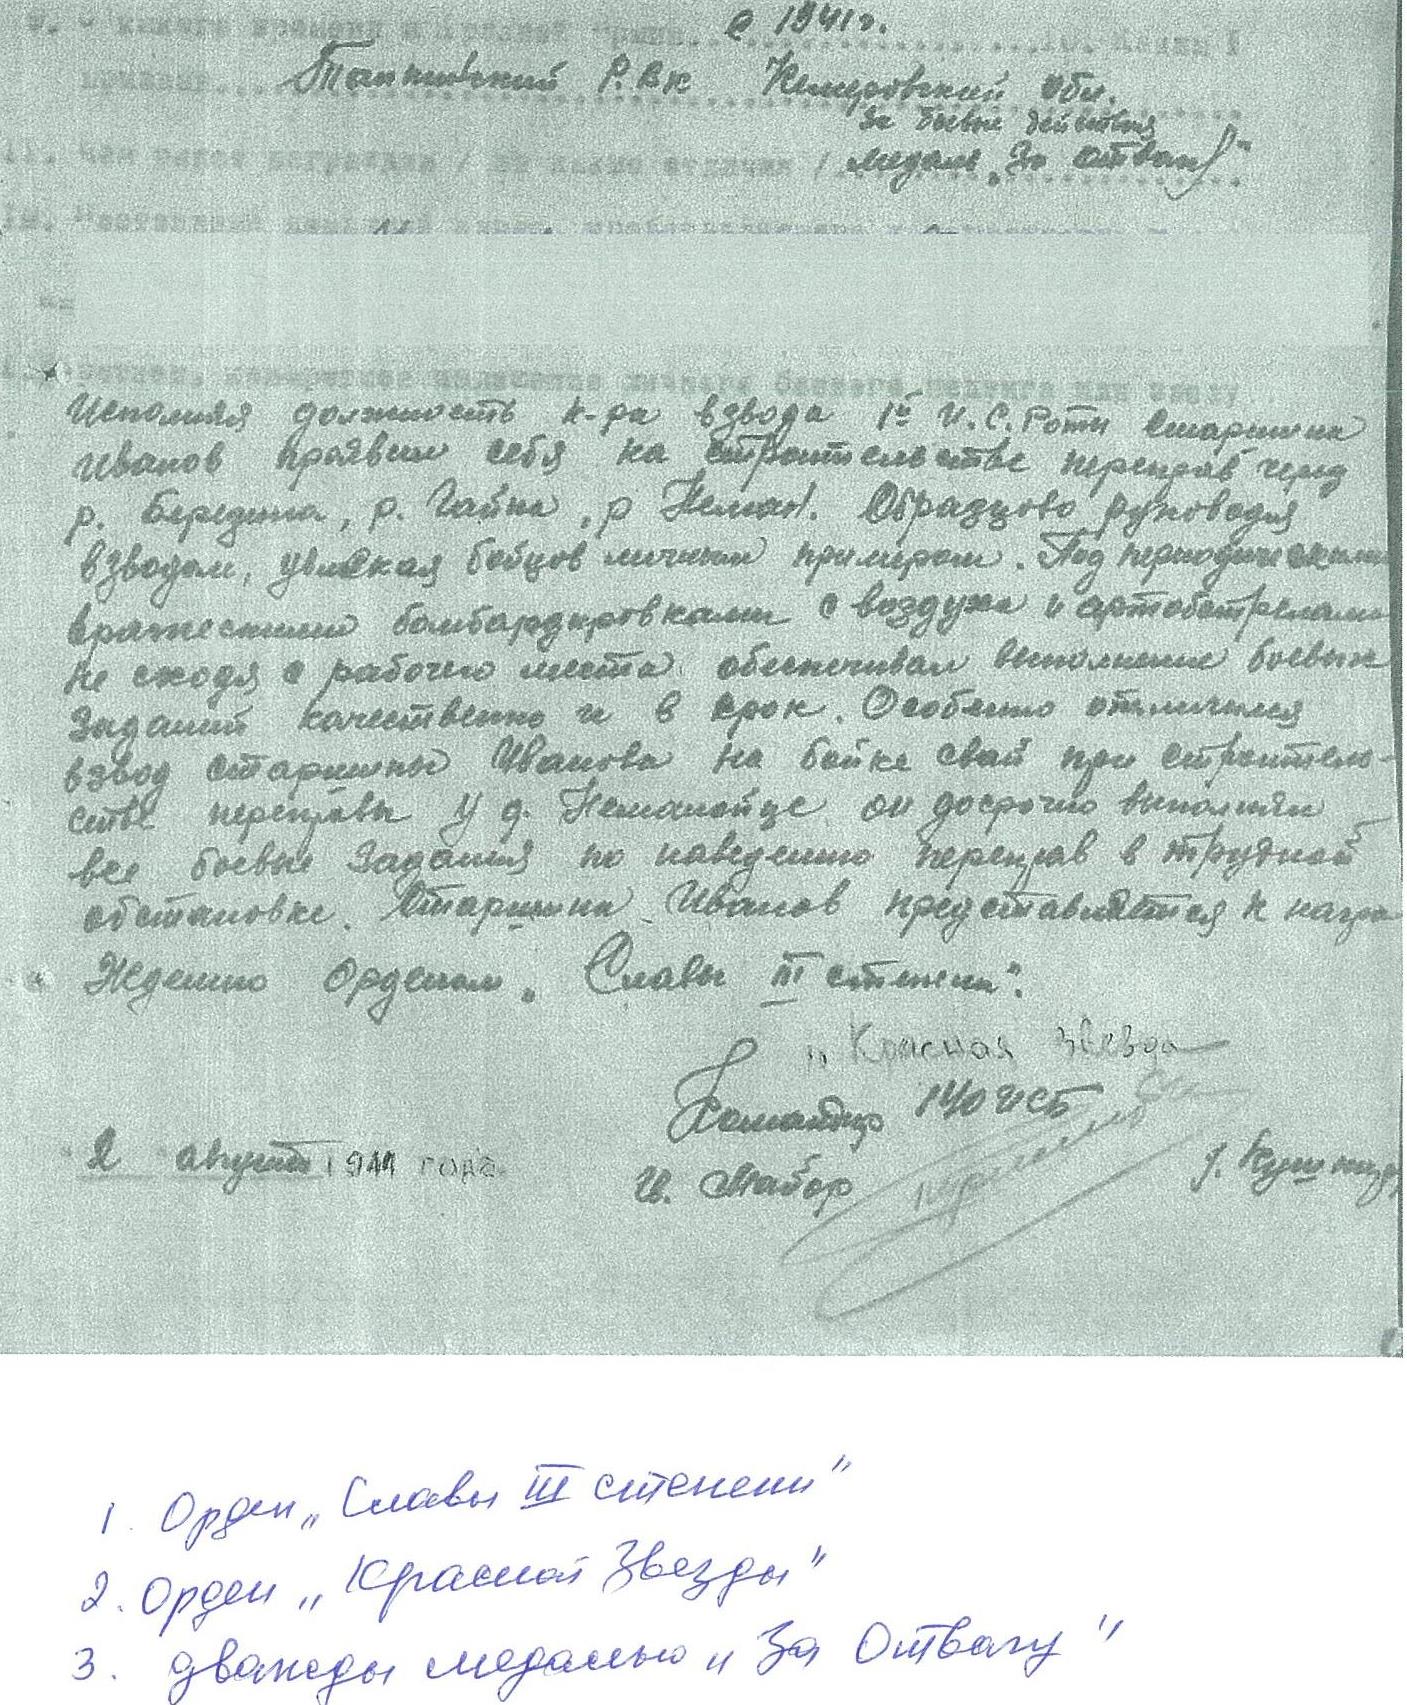 9. С какого времени в Красной Армии с 1941г. 10. Каким
призван Р.ВК Кемеровский Обл.
за боевые действия
11. Чем ранее награжден / за какие отличия / медаль „За отвагу"
12. Постоянный домашний адрес,
Исполняя должность к-ра взвода 1й И.С.Роты Старшина
Иванов проявил себя на строительстве переправ через
р. Березина, р. Гайна, р Неман. Образцово руководя
взводом, увлекая бойцов личным примером. Под периодическими
вражескими бомбардировками с воздуха и артобстрелами
не сходя с рабочего места обеспечивал выполнение боевых
заданий качественно и в срок. Особенно отличился
взвод старшины Иванова на бойке свай при строитель-
стве переправы у д. он досрочно выполнял
все боевые задания по наведению переправ в трудной
обстановке. Старшина Иванов представляется к награ
ждению Орденом „Славы III степени".
„Красная Звезда
Командир 140 ИСБ
"2" августа 1944 года.
И. Майор
1. Орден „Славы III степени"
2. Орден „Красной Звезды"
3. дважды медалью „За Отвагу"